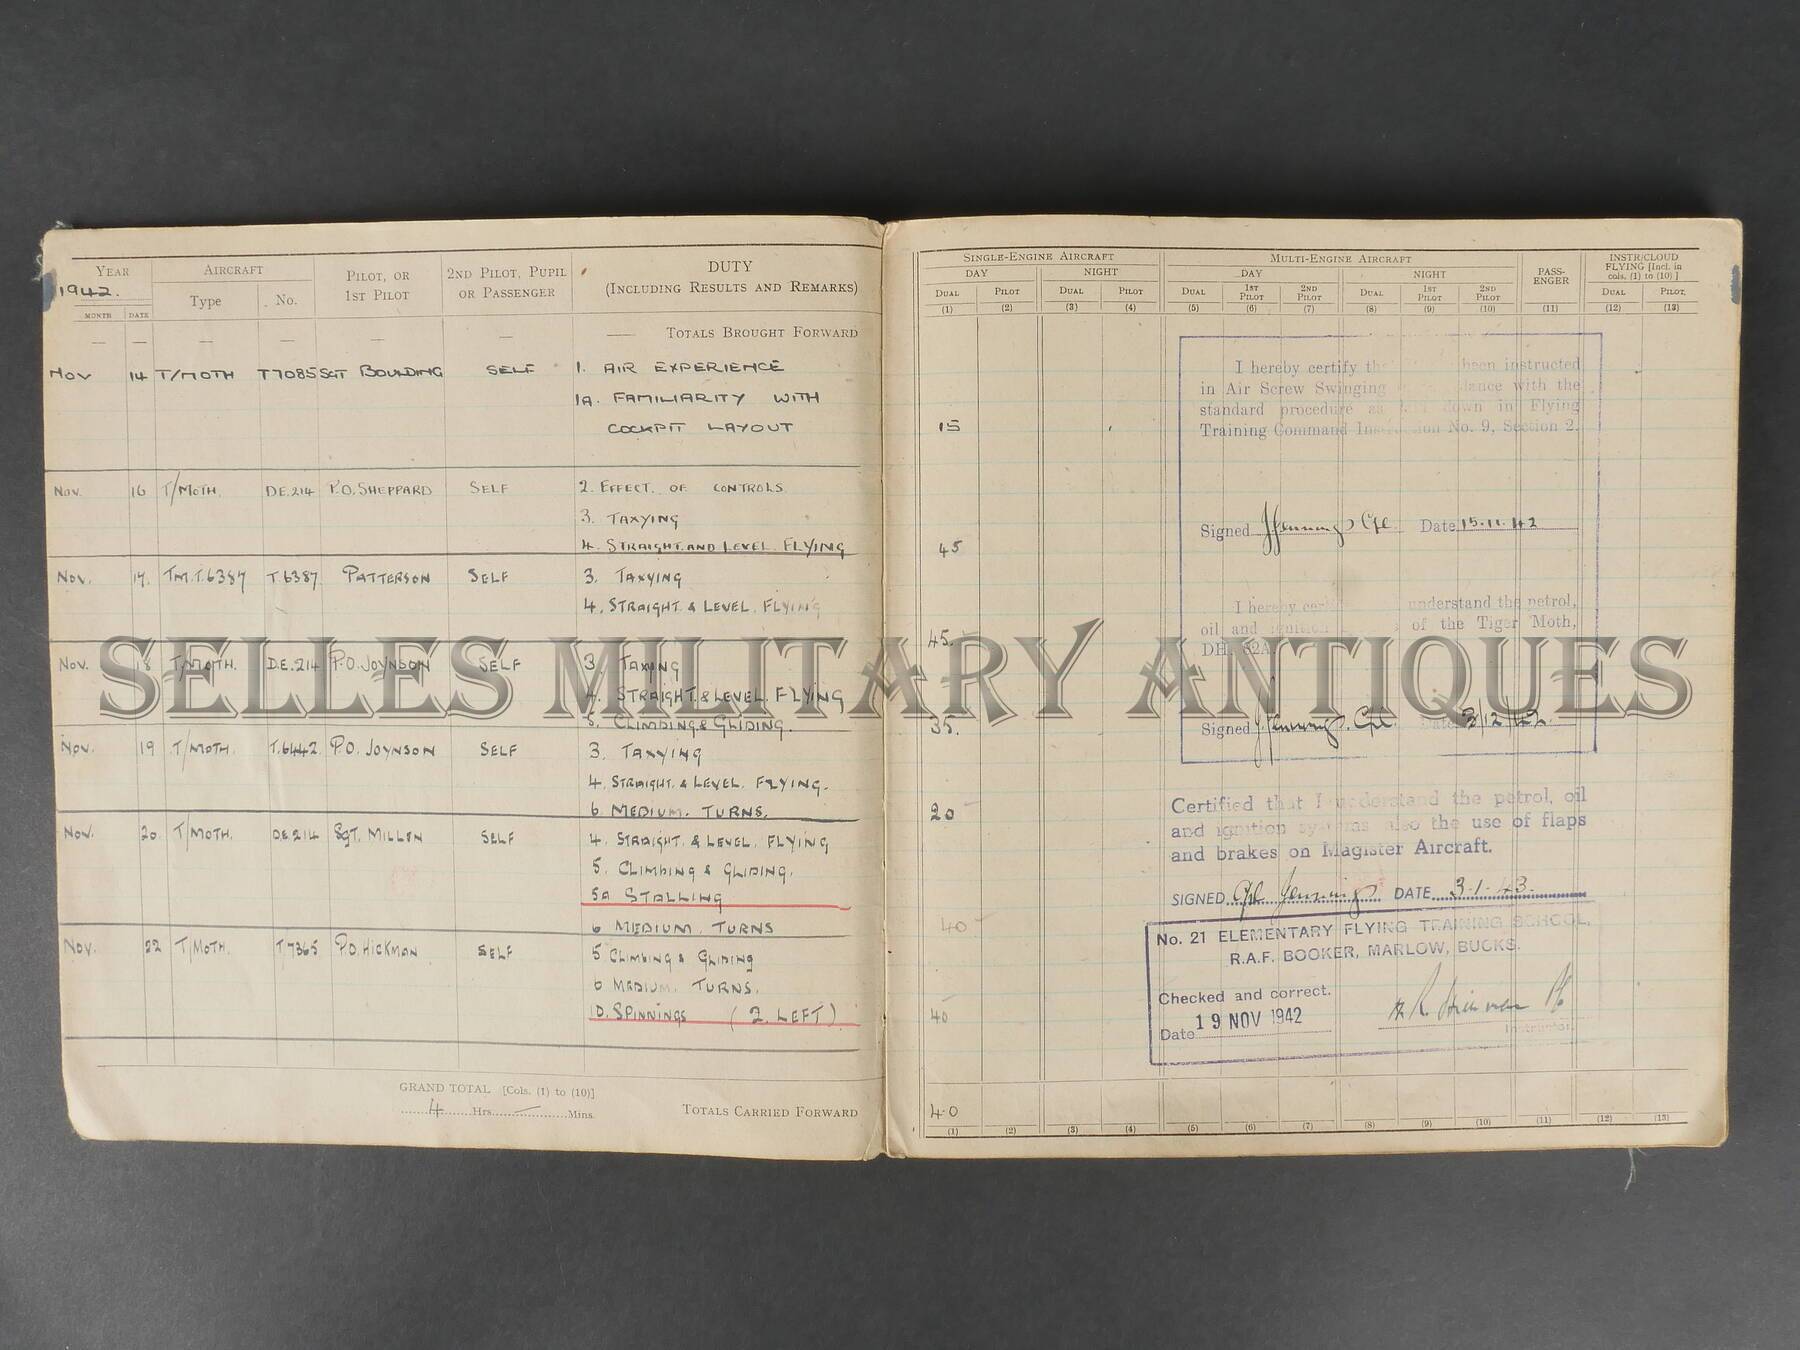 YEAR AIRCRAFT PILOT, OR 1ST PILOT 2ND PILOT, PUPIL OR PASSENGER DUTY (INCLUDING RESULTS AND REMARKS)
1942. Type No.
MONTH DATE
— — — — — — — TOTALS BROUGHT FORWARD
NOV 14 T/MOTH T7085 SGT BOULDING SELF 1. AIR EXPERIENCE
1A. FAMILIARITY WITH
COCKPIT LAYOUT
NOV. 16 T/MOTH. DE.214 P.O. SHEPPARD SELF 2. EFFECT. OF CONTROLS
3. TAXYING
4. STRAIGHT. AND LEVEL. FLYING
NOV. 17. TM.T.6387 T.6387 PATTERSON SELF 3. TAXYING
4. STRAIGHT. & LEVEL. FLYING
NOV. 18 T/MOTH. DE.214 P.O. JOYNSON SELF 3. TAXYING
4. STRAIGHT. & LEVEL. FLYING
5. CLIMBING & GLIDING.
NOV. 19 T/MOTH. T.6442 P.O. JOYNSON SELF 3. TAXYING
4. STRAIGHT. & LEVEL. FLYING.
6. MEDIUM. TURNS.
NOV. 20. T/MOTH. DE.214 SGT. MILLEN SELF 4. STRAIGHT. & LEVEL. FLYING
5. CLIMBING & GLIDING.
5A STALLING
6 MEDIUM. TURNS
NOV. 22 T/MOTH. T7365 P.O. HICKMAN SELF 5 CLIMBING & GLIDING
6 MEDIUM. TURNS.
10. SPINNINGS (2. LEFT)
GRAND TOTAL [Cols. (1) to (10)]
4 Hrs. — Mins. TOTALS CARRIED FORWARD
SINGLE-ENGINE AIRCRAFT MULTI-ENGINE AIRCRAFT PASS-ENGER INSTR/CLOUD FLYING [Incl. in cols. (1) to (10)]
DAY NIGHT DAY NIGHT
DUAL PILOT DUAL PILOT DUAL 1ST PILOT 2ND PILOT DUAL 1ST PILOT 2ND PILOT DUAL PILOT
(1) (2) (3) (4) (5) (6) (7) (8) (9) (10) (11) (12) (13)
15
45
45
35.
20
40
40
40
(1) (2) (3) (4) (5) (6) (7) (8) (9) (10) (11) (12) (13)
I hereby certify been instructed
in Air Screw Swinging with the
standard procedure as down in Flying
Training Command No. 9, Section 2.
Signed J. Jennings Cpl. Date 15.11.42
I hereby understand the petrol,
oil and ignition of the Tiger Moth,
DH. 82A
Signed J. Jennings. Cpl. Date /12/42.
Certified that I understand the petrol, oil
and ignition systems also the use of flaps
and brakes on Magister Aircraft.
SIGNED Cpl Jennings DATE 3.1.43.
No. 21 ELEMENTARY FLYING TRAINING SCHOOL,
R.A.F. BOOKER, MARLOW, BUCKS.
Checked and correct.
Date 19 NOV 1942
Instructor.
SELLES MILITARY ANTIQUES